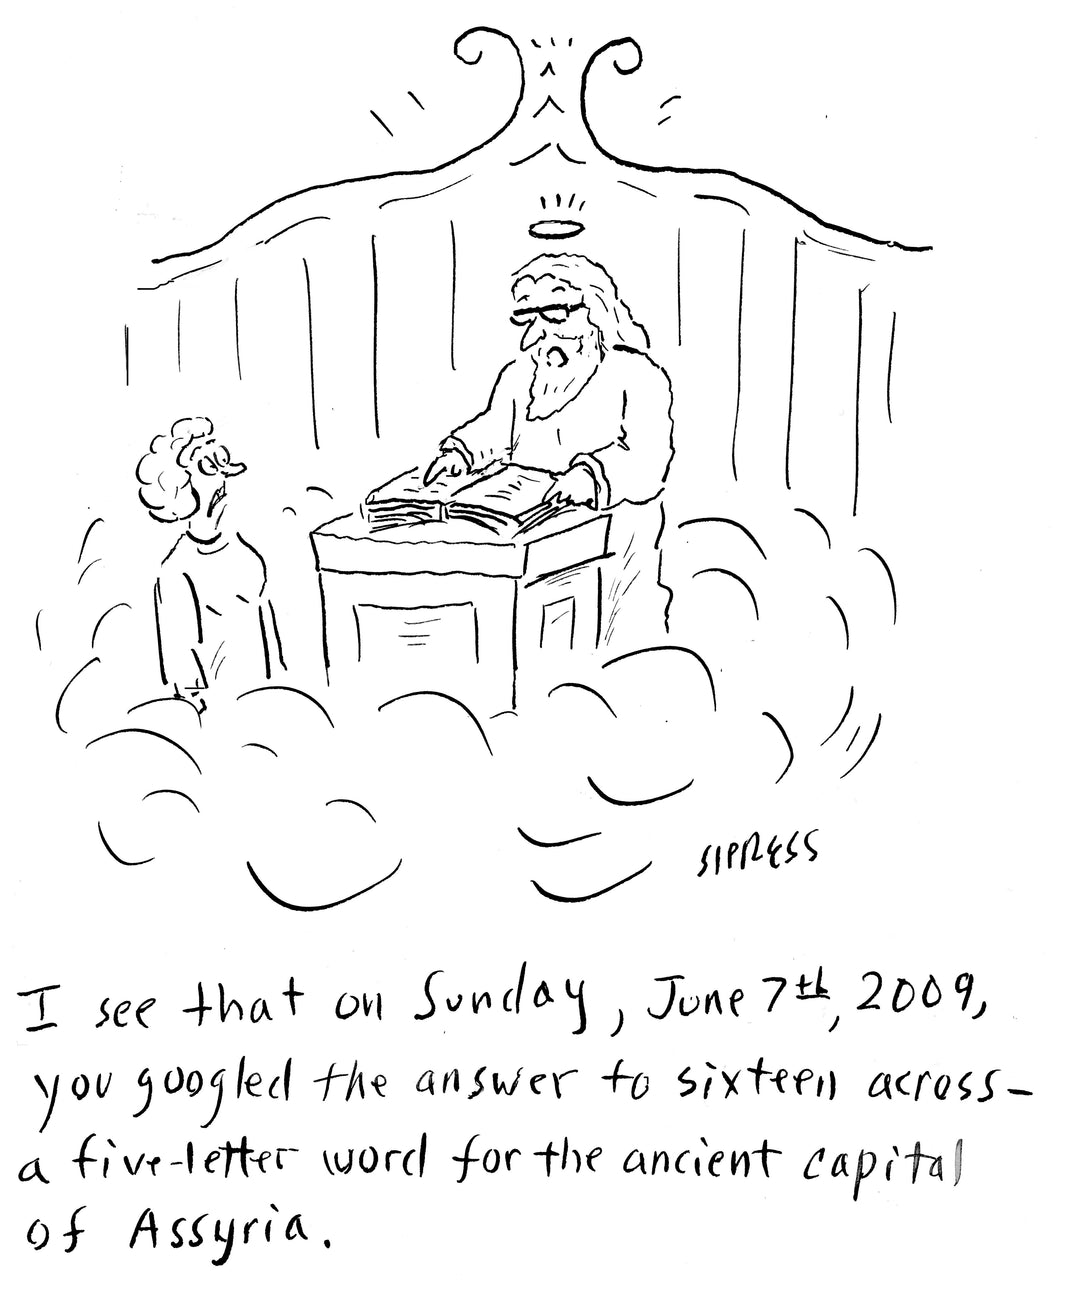 SIPRESS
I see that on Sunday, June 7th, 2009,
you googled the answer to sixteen across-
a five-letter word for the ancient capital
of Assyria.